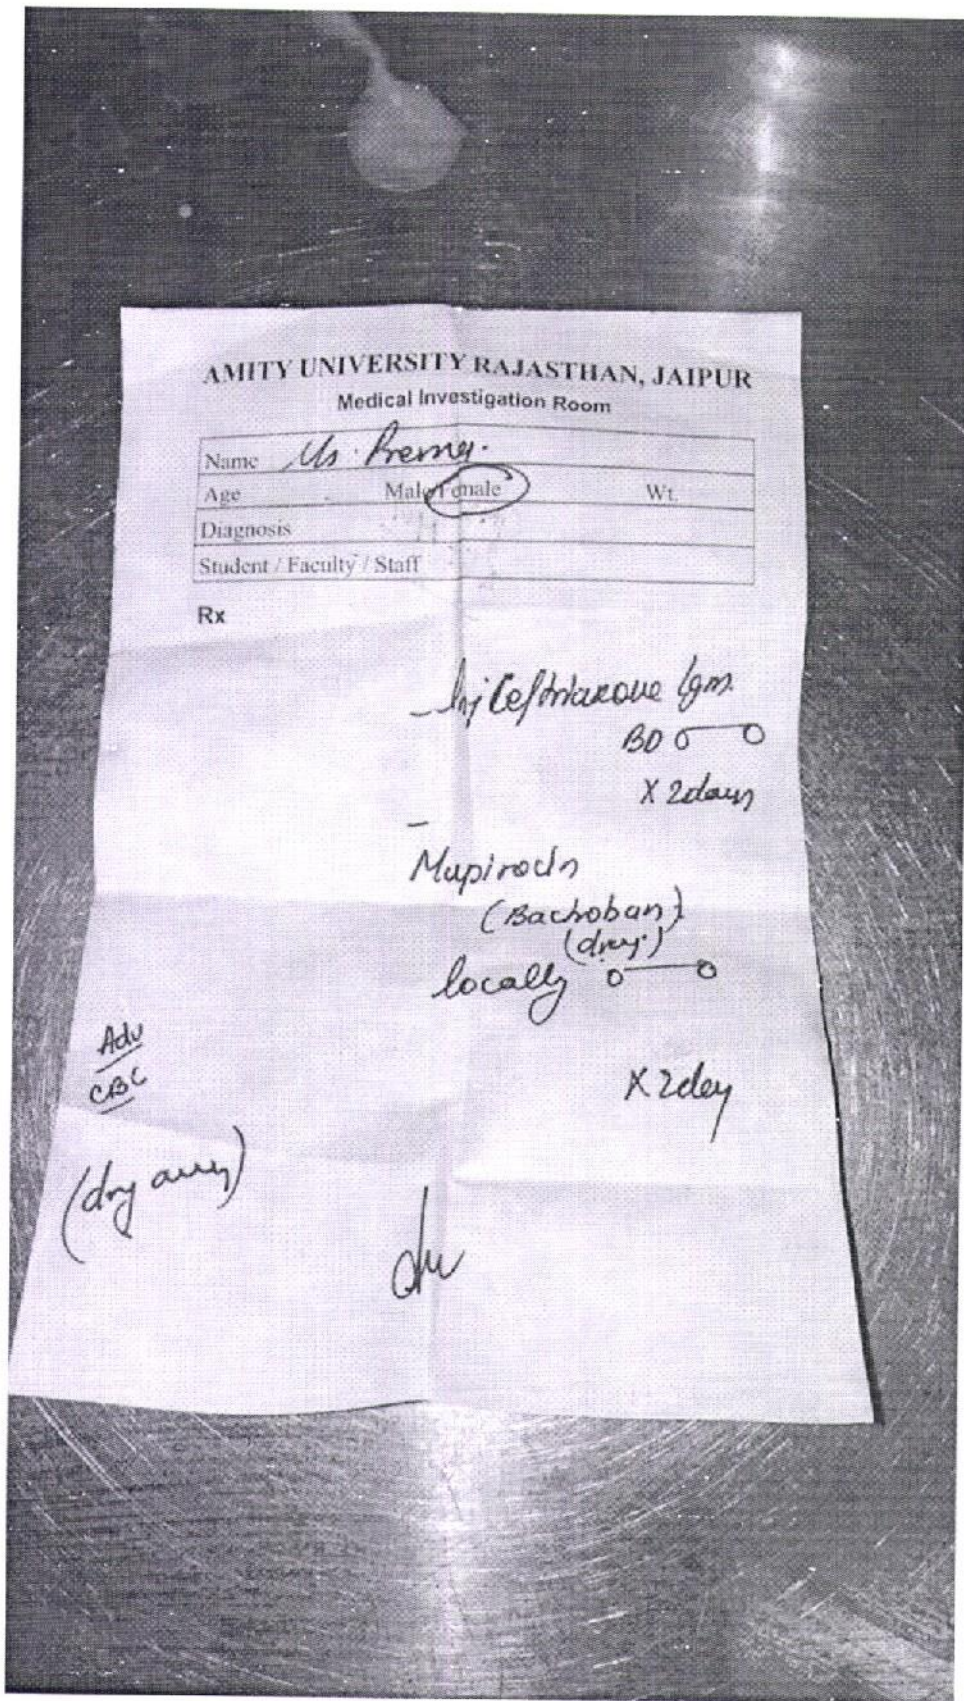 AMITY UNIVERSITY RAJASTHAN, JAIPUR
Medical Investigation Room
Name Ms. Prerna.
Age Male/Female Wt.
Diagnosis
Student / Faculty / Staff
Rx
- Inj Ceftriaxone 1gm
BD o—o
X 2days
-
Mupirocin
(Bactroban)
locally o—o
Adv
CBC
X 2day
(dry